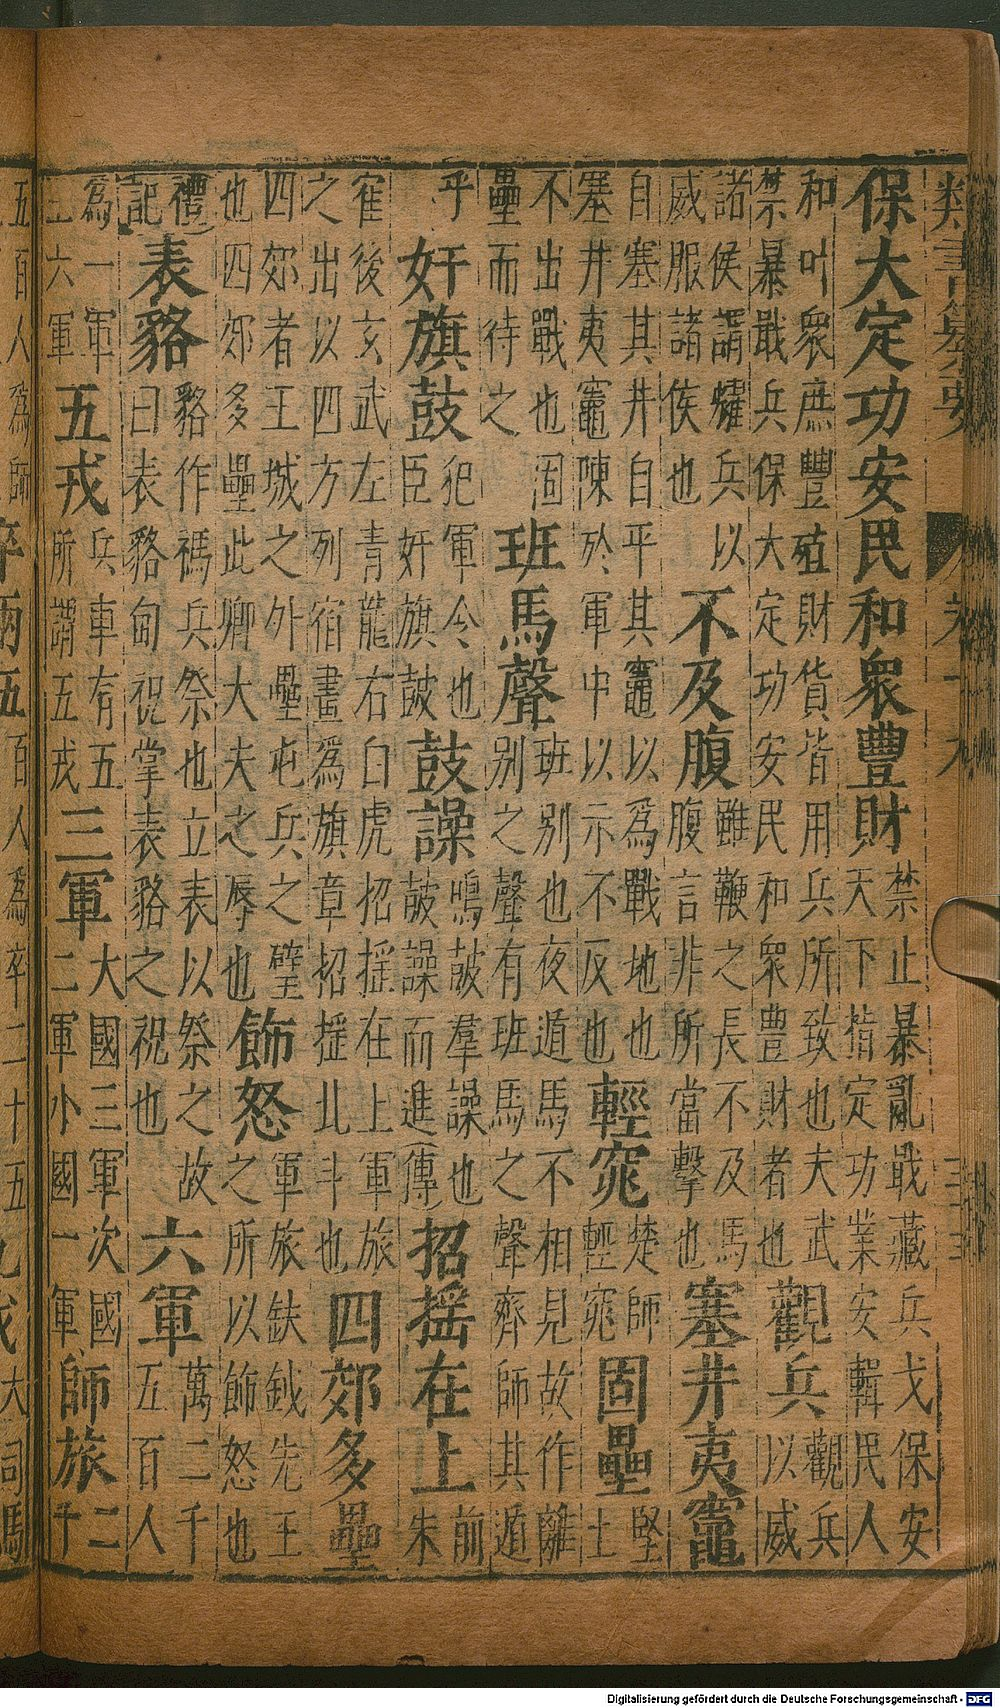 保大定功安民和衆豐財
禁止暴亂戢藏兵戈保安
天下措定功業安輯民人
和叶衆庶豐殖財貨皆用兵所致也夫武
禁暴戢兵保大定功安民和衆豊財者也
觀兵
觀兵
以威
諸侯謂燿兵以
威服諸侯也
不及腹
雖鞭之長不及馬
腹言非所當擊也
塞井夷竈
自塞其井自平其竈以為戰地也
塞井夷竈陳於軍中以示不反也
輕窕
楚師
輕窕
固壘
堅
士
不出戰也固
壘而待之
班馬聲
班別也夜遁馬不相見故作離
別之聲有班馬之聲齊師其遁
乎
奸旗鼓
犯軍令也
臣奸旗鼓
鼓譟
鳴鼓羣譟也
鼓譟而進傳
招揺在上
前
朱
雀後玄武左青龍右白虎招揺在上軍旅
之出以四方列宿畫爲旗章招揺北斗也
四郊多壘
四郊者王城之外壘屯兵之壁
也四郊多壘此卿大夫之辱也
飾怒
軍旅鈇鉞先王
之所以飾怒也
禮
記
表貉
貉作禡兵祭也立表以祭之故
曰表貉甸祝掌表貉之祝也
六軍
萬二千
五百人
爲一軍
王六軍
五戎
兵車有五
所謂五戎
三軍
大國三軍次國
二軍小國一軍
師旅
二
千
五百人爲師
Digitalisierung gefördert durch die Deutsche Forschungsgemeinschaft - DFG